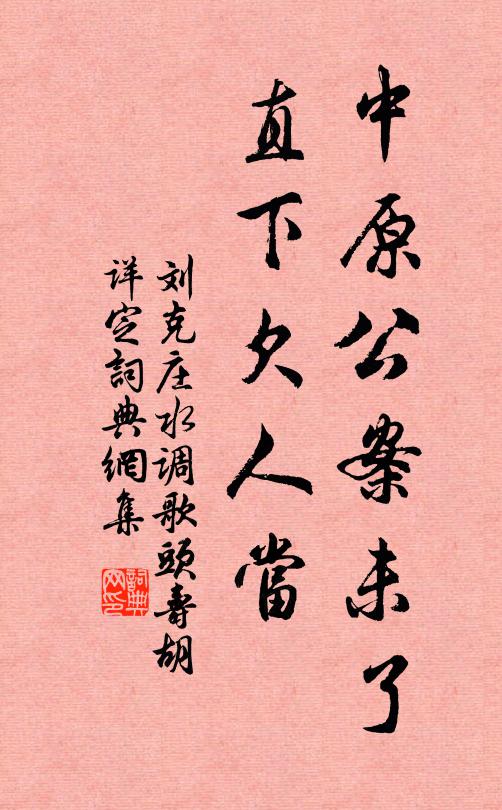 中原公案未了
直下欠人當
刘克庄水调歌頭壽胡
详定詞典網集
詞典网印